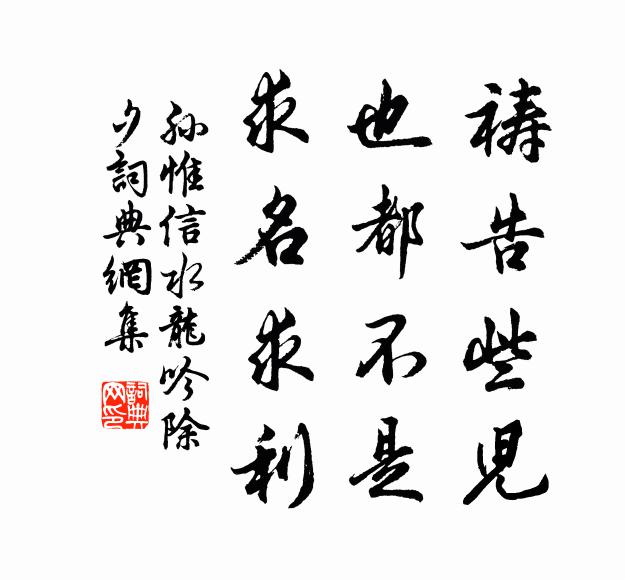 祷告些児
也都不是
求名求利
孙惟信水龍吟除
夕詞典網集
詞典网印